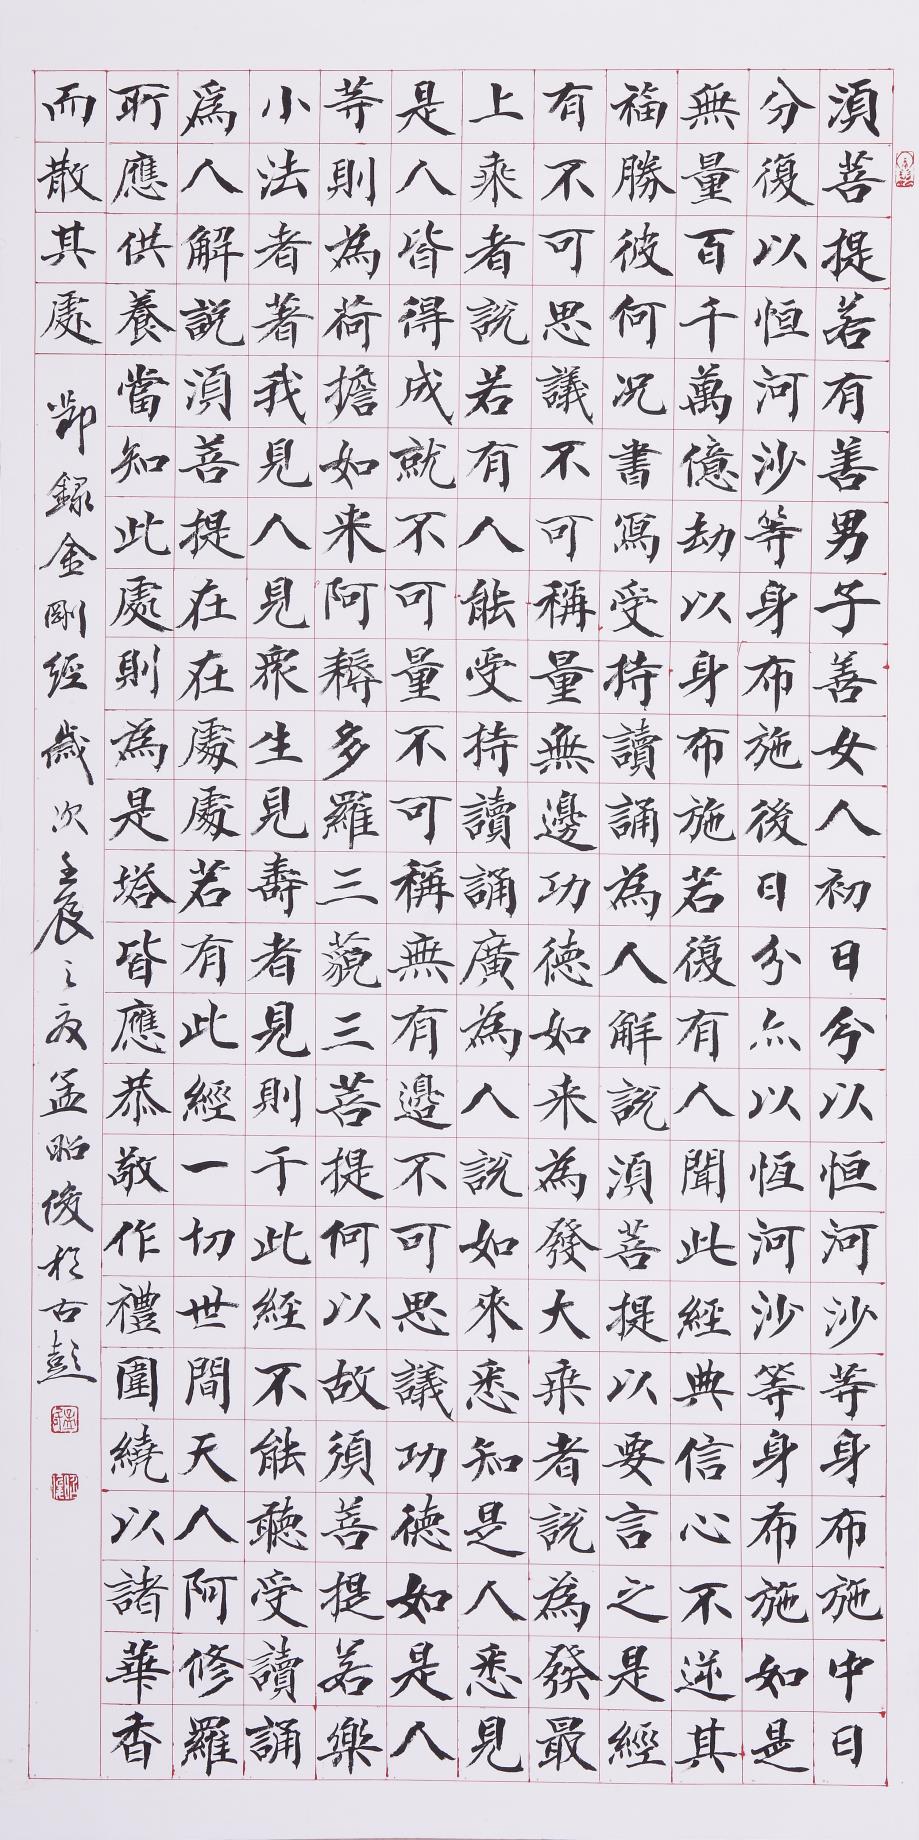 須菩提若有善男子善女人初日分以恒河沙等身布施中日
分復以恒河沙等身布施後日分亦以恒河沙等身布施如是
無量百千萬億劫以身布施若復有人聞此經典信心不逆其
福勝彼何況書寫受持讀誦為人解說須菩提以要言之是經
有不可思議不可稱量無邊功德如来為發大乘者說為發最
上乘者說若有人能受持讀誦廣為人說如來悉知是人悉見
是人皆得成就不可量不可稱無有邊不可思議功德如是人
等則為荷擔如来阿耨多羅三藐三菩提何以故須菩提若樂
小法者著我見人見眾生見壽者見則于此經不能聽受讀誦
為人解説須菩提在在處處若有此經一切世間天人阿修羅
所應供養當知此處則為是塔皆應恭敬作禮圍繞以諸華香
而散其處
節錄金剛經歲次壬辰之夏孟昭俊於古彭